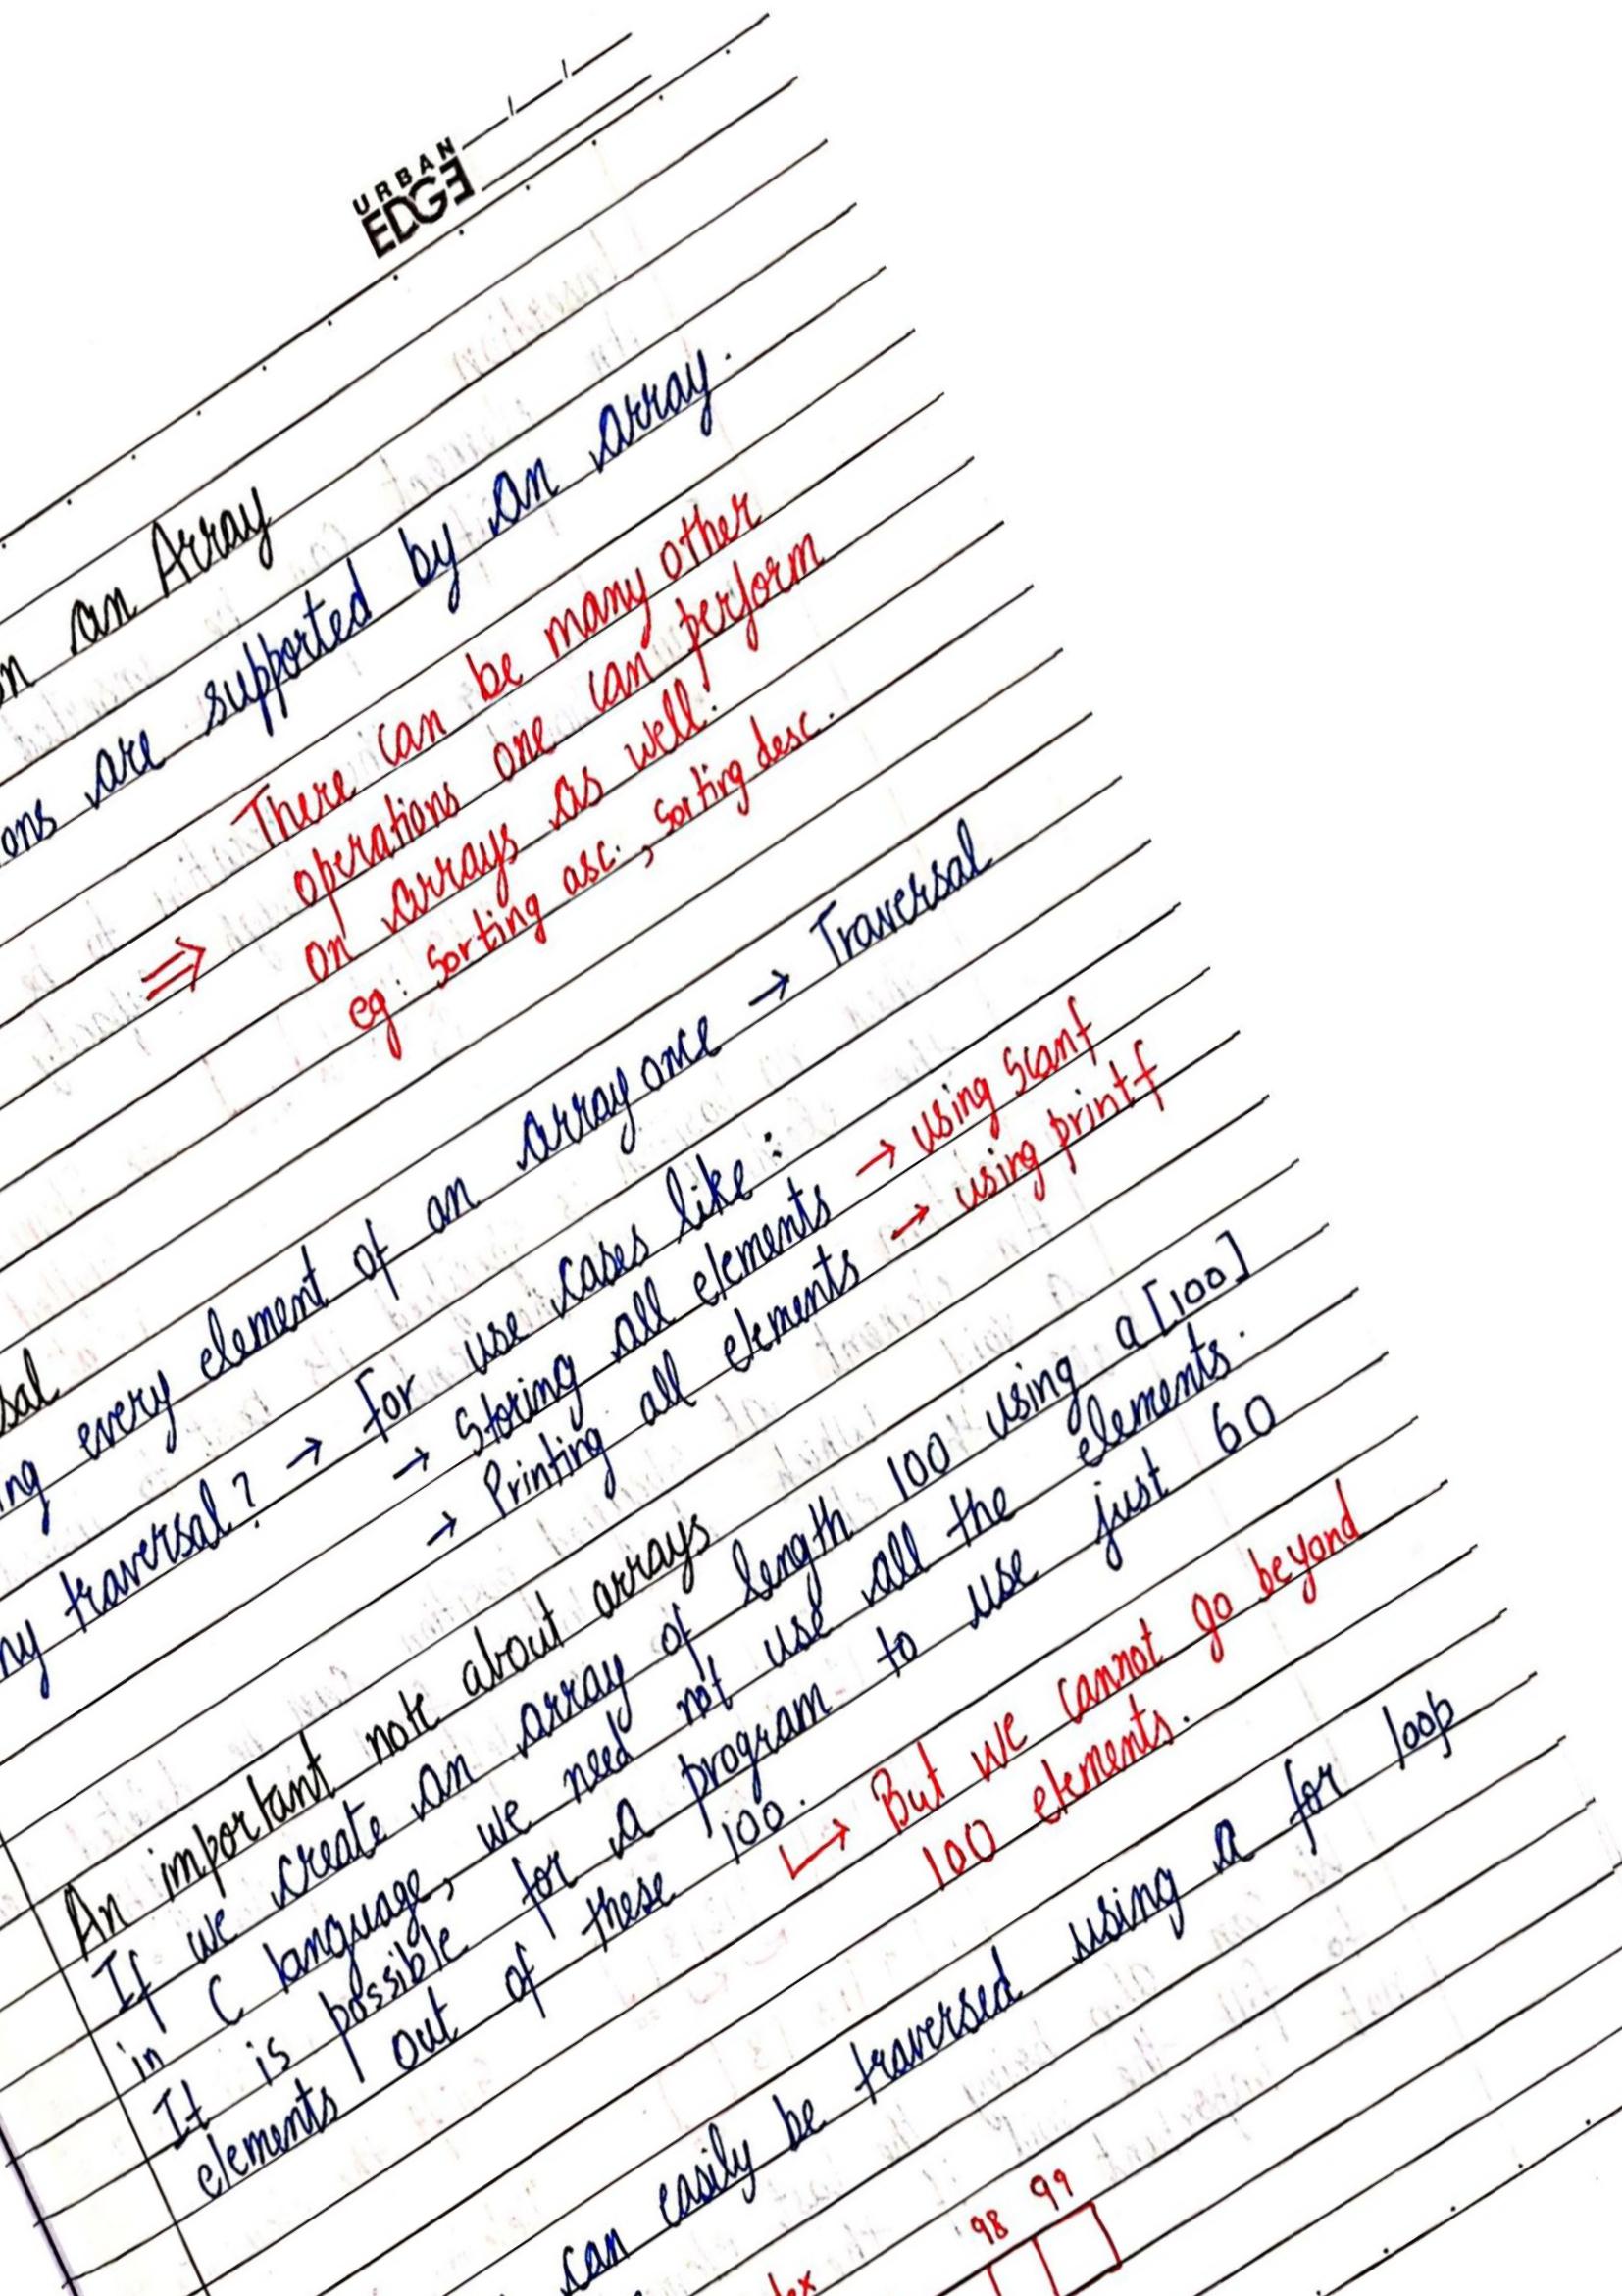 URBAN
EDGE
an Array
are supported by an array.
There can be many other
operations one can perform
⇒ on arrays as well.
eg: Sorting asc., Sorting desc.
every element of an array once → Traversal
traversal? → For use cases like :
→ Storing all elements → using scanf
→ Printing all elements → using printf
An important note about arrays
If we create an array of length 100 using a[100]
in C language, we need not use all the elements.
It is possible for a program to use just 60
elements out of these 100.
↳ But we cannot go beyond
100 elements.
can easily be traversed using a for loop
98 99